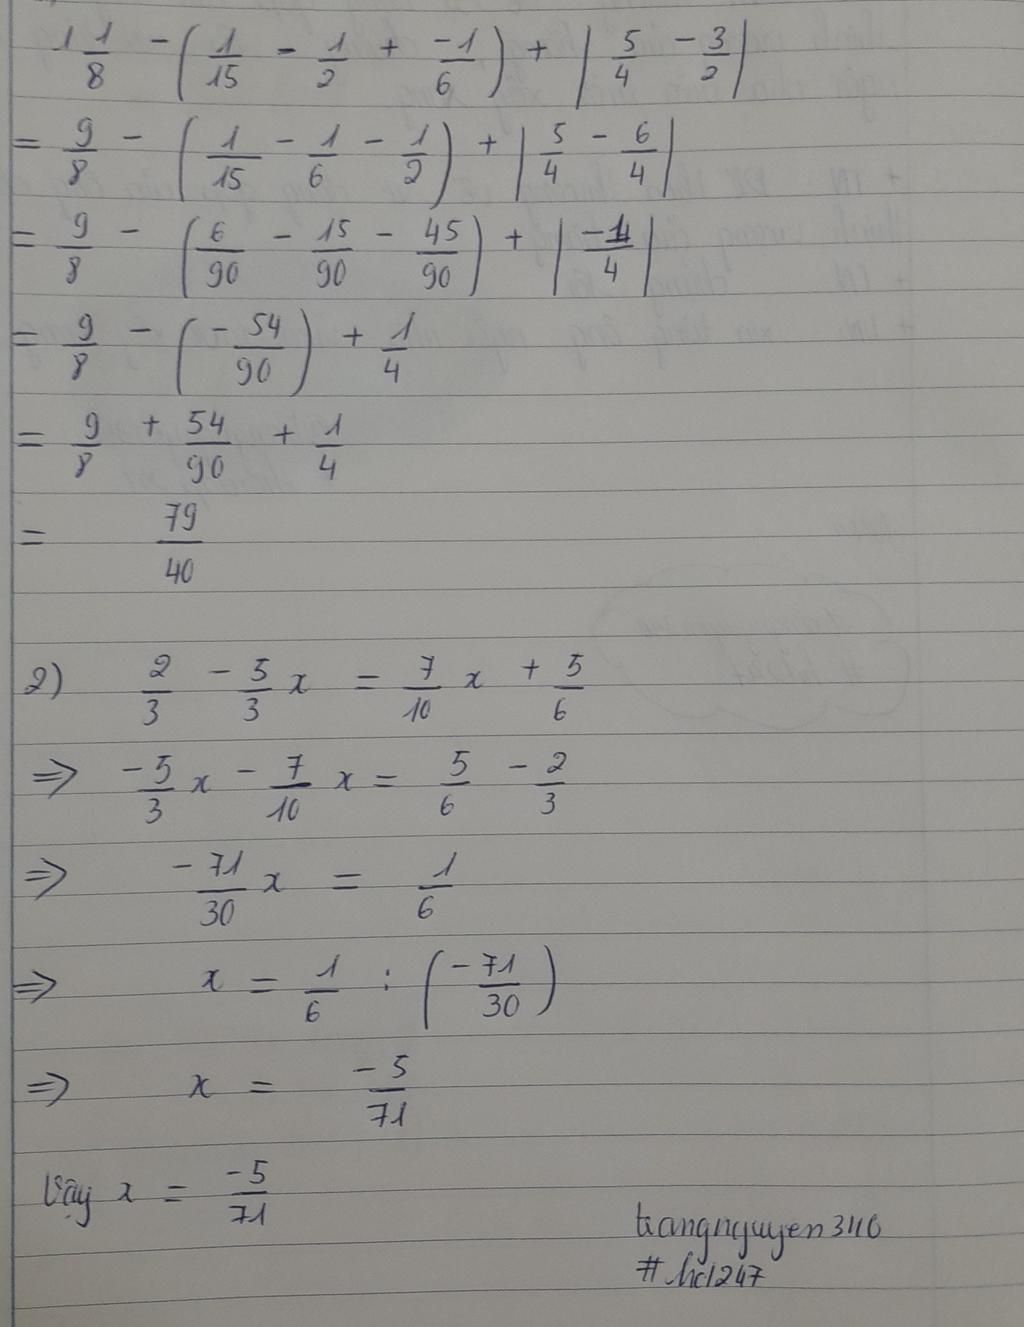 1 1/8 - (1/15 - 1/2 + -1/6) + |5/4 - 3/2|
= 9/8 - (1/15 - 1/6 - 1/2) + |5/4 - 6/4|
= 9/8 - (6/90 - 15/90 - 45/90) + |-1/4|
= 9/8 - (-54/90) + 1/4
= 9/8 + 54/90 + 1/4
= 79/40
2) 2/3 - 5/3 x = 7/10 x + 5/6
⇒ -5/3 x - 7/10 x = 5/6 - 2/3
⇒ -71/30 x = 1/6
⇒ x = 1/6 : (-71/30)
⇒ x = -5/71
Vậy x = -5/71
trangnguyen3110
#hc1247